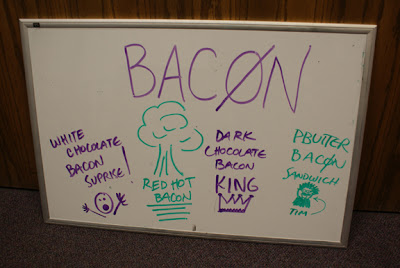 BACØN
WHITE
CHOCOLATE
BACON
SUPRISE!
RED HOT
BACON
DARK
CHOCOLATE
BACON
KING
PBUTTER
BACØN
SANDWICH
TIM